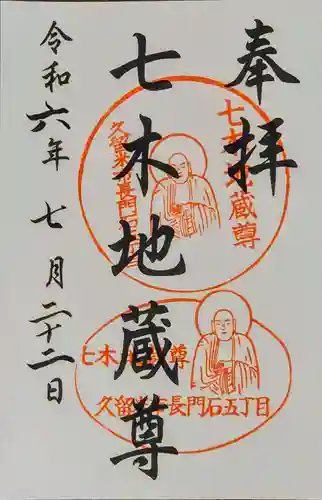 奉拝
七木地蔵尊
令和六年七月二十二日
七木地蔵尊
久留米市長門石五丁目
七木地蔵尊
久留米市長門石五丁目